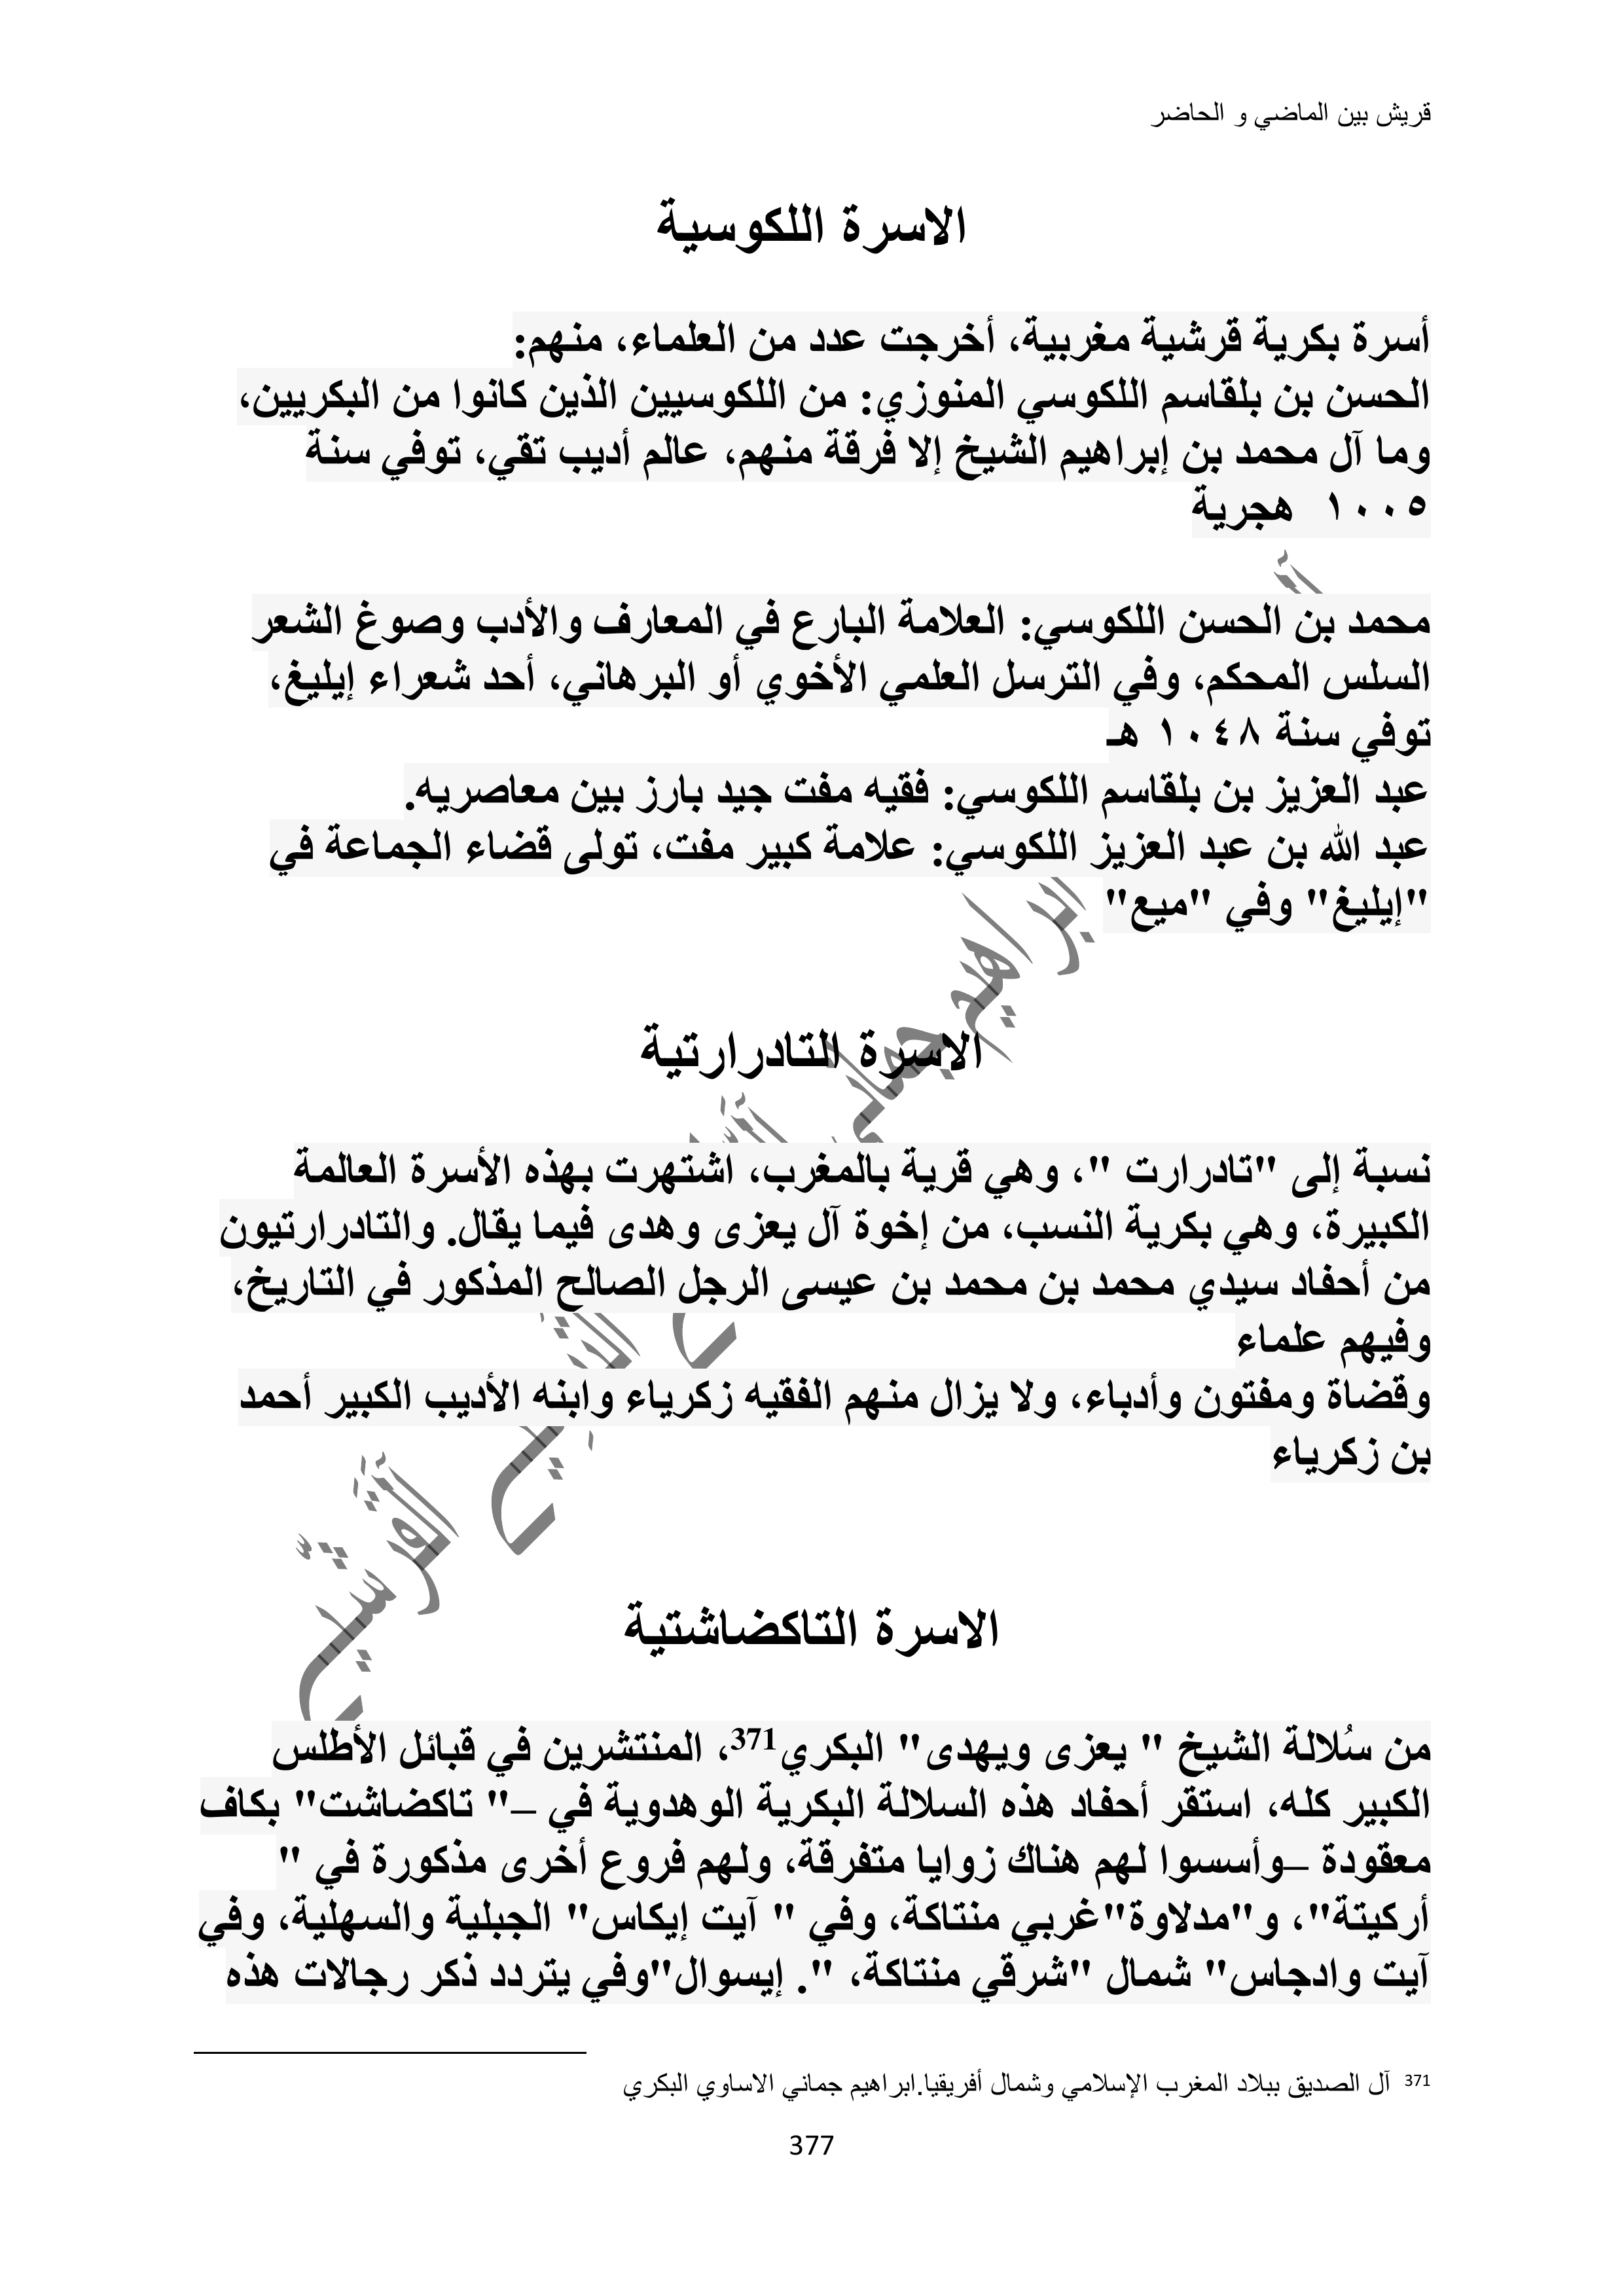 قريش بين الماضي و الحاضر
الاسرة اللكوسية
أسرة بكرية قرشية مغربية، أخرجت عدد من العلماء، منهم:
الحسن بن بلقاسم اللكوسي المنوزي: من اللكوسيين الذين كانوا من البكريين،
وما آل محمد بن إبراهيم الشيخ إلا فرقة منهم، عالم أديب تقي، توفي سنة
١٠٠٥ هجرية
محمد بن الحسن اللكوسي: العلامة البارع في المعارف والأدب وصوغ الشعر
السلس المحكم، وفي الترسل العلمي الأخوي أو البرهاني، أحد شعراء إيليغ،
توفي سنة ١٠٤٨ هـ
عبد العزيز بن بلقاسم اللكوسي: فقيه مفت جيد بارز بين معاصريه.
عبد الله بن عبد العزيز اللكوسي: علامة كبير مفت، تولى قضاء الجماعة في
"إيليغ" وفي "ميع"
الاسرة التادرارتية
نسبة إلى "تادرارت "، وهي قرية بالمغرب، اشتهرت بهذه الأسرة العالمة
الكبيرة، وهي بكرية النسب، من إخوة آل يعزى وهدى فيما يقال. والتادرارتيون
من أحفاد سيدي محمد بن محمد بن عيسى الرجل الصالح المذكور في التاريخ،
وفيهم علماء
وقضاة ومفتون وأدباء، ولا يزال منهم الفقيه زكرياء وابنه الأديب الكبير أحمد
بن زكرياء
الاسرة التاكضاشتية
من سُلالة الشيخ " يعزى ويهدى" البكري371، المنتشرين في قبائل الأطلس
الكبير كله، استقر أحفاد هذه السلالة البكرية الوهدوية في –" تاكضاشت" بكاف
معقودة –وأسسوا لهم هناك زوايا متفرقة، ولهم فروع أخرى مذكورة في "
أركيتة"، و"مدلاوة"غربي منتاكة، وفي " آيت إيكاس" الجبلية والسهلية، وفي
آيت وادجاس" شمال "شرقي منتاكة، ". إيسوال"وفي يتردد ذكر رجالات هذه
371 آل الصديق ببلاد المغرب الإسلامي وشمال أفريقيا.ابراهيم جماني الاساوي البكري
377